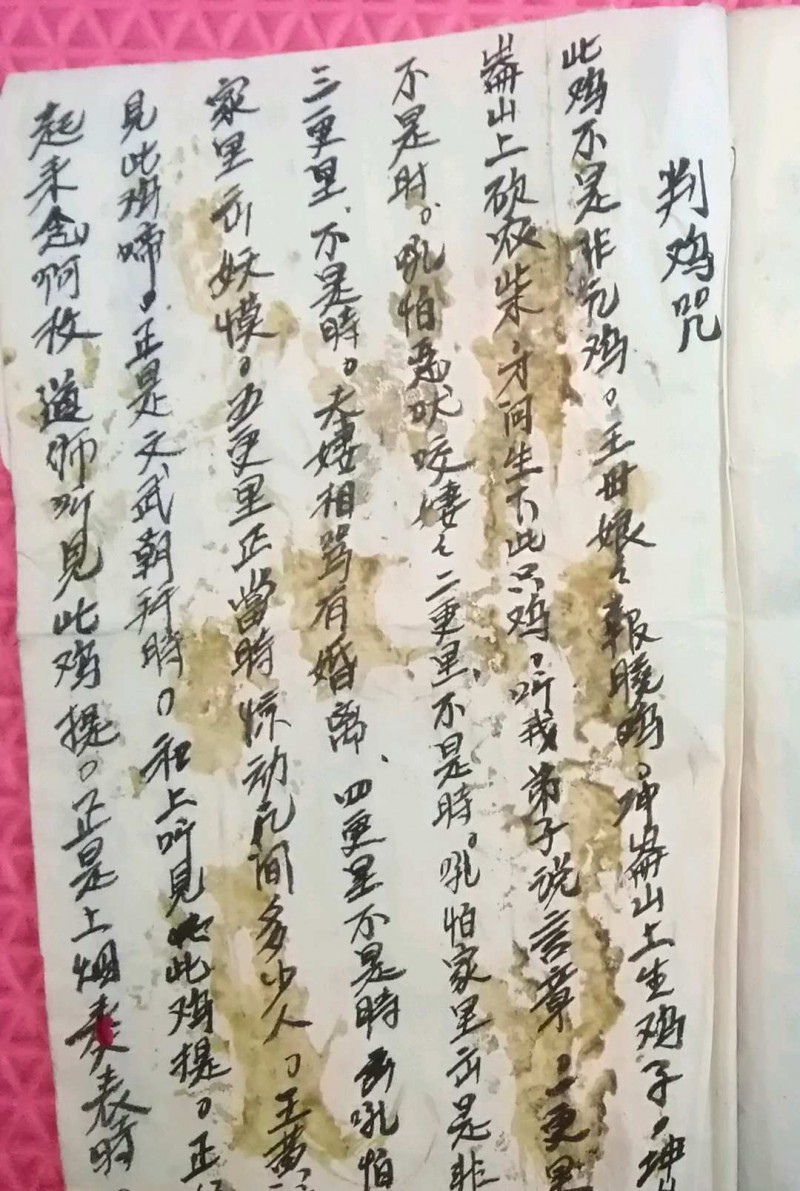 判鸡咒
此鸡不是非凡鸡。王母娘々報曉鸡。坤崙山上生鸡子。坤
崙山上砍柴，才间生下此只鸡，听我弟子说言章。一更里
不是时。吼怕恶吠咬凄々二更里、不是時。吼怕家里出是非
三更里、不是時。夫妻相骂有婚离、四更里不是時 吼怕
家里出妖 。五更里正當時惊动凡间多少人。王黄
見此鸡啼。正是文武朝拜時。和上听見此鸡提。正
起来念啊枚 道师听見此鸡提。正是上烟奏表時。